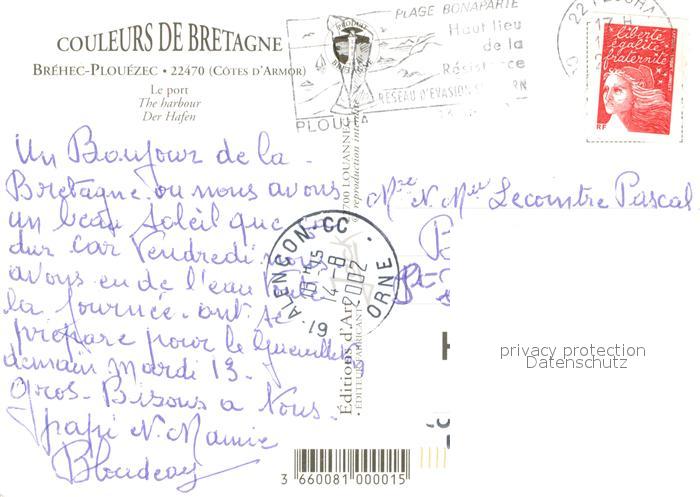 COULEURS DE BRETAGNE
BRÉHEC-PLOUÉZEC • 22470 (CÔTES D'ARMOR)
Le port
The harbour
Der Hafen
PLAGE BONAPARTE
Haut lieu
de la
Résistance
RÉSEAU D'EVASION
PLOUHA
22 PLOUHA
17 H
liberté
égalité
fraternité
RF
Un Boujour de la
Bretagne ou nous avons
un beau Soleil que
dur Car Vendredi nous
avons eu de l'eau toute
la Journée. ont se
prépare pour le
demain Mardi 13.
gros. Bisous a Nous.
papi N. Mamie
Mre N. Mme Lecointre Pascal
61 ALENÇON-CC
ORNE
16 H 15
14-8
2002
Éditions d'Art
ÉDITEURS FABRICANTS
reproduction interdite
privacy protection
Datenschutz
3 660081 000015